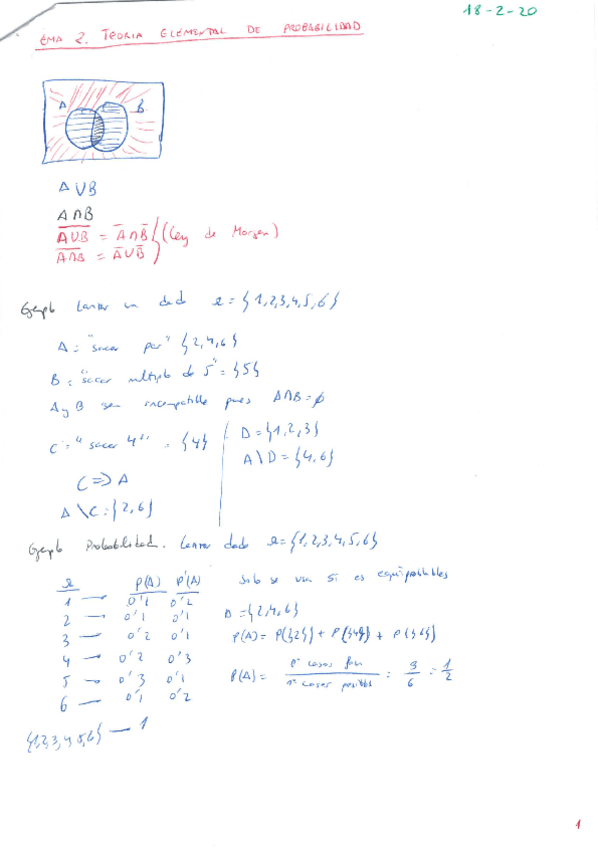 18-2-20
EMA 2. TEORIA ELEMENTAL DE PROBABILIDAD
A B
A ∪ B
A ∩ B
\overline{A∪B} = \overline{A} ∩ \overline{B} } (Ley de Morgan)
\overline{A∩B} = \overline{A} ∪ \overline{B}
Ejemplo Lanzar un dado Ω = {1,2,3,4,5,6}
A = "sacar par" {2,4,6}
B = "sacar multiplo de 5" = {5}
A y B son incompatible pues A∩B = ∅
C = "sacar 4" = {4}
C => A
A \ C = {2,6}
D = {1,2,3}
A \ D = {4,6}
Ejemplo Probabilidad. Lanzar dado Ω = {1,2,3,4,5,6}
Ω P(A) P'(A)
1 — 0'1 0'2
2 — 0'1 0'1
3 — 0'2 0'1
4 — 0'2 0'3
5 — 0'3 0'1
6 — 0'1 0'2
{1,2,3,4,5,6} — 1
Solo se usa si es equiprobables
A = {2,4,6}
P(A) = P({2}) + P({4}) + P({6})
P(A) = nº casos fav / nº casos posible = 3/6 = 1/2
1